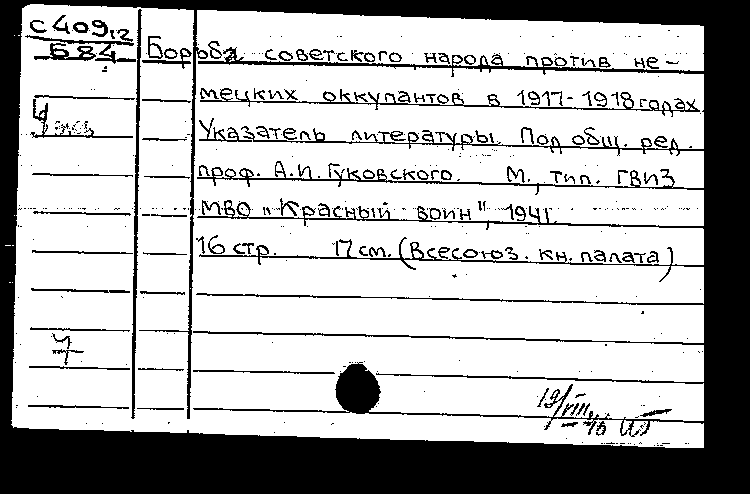 С 409,12
Б 84
Борьба советского народа против не-
мецких оккупантов в 1917-1918 годах
Указатель литературы. Под общ. ред.
проф. А.И. Гуковского. М., тип. ГВИЗ
МВО "Красный воин", 1941.
16 стр. 17 см. (Всесоюз. кн. палата)
7
19/VIII